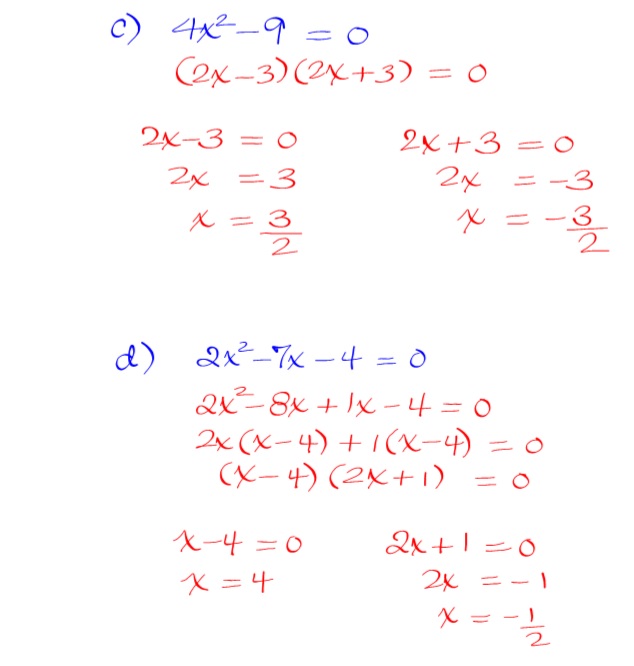 c) 4x² - 9 = 0
(2x - 3)(2x + 3) = 0
2x - 3 = 0    2x + 3 = 0
2x = 3    2x = -3
x = 3/2    x = -3/2
d) 2x² - 7x - 4 = 0
2x² - 8x + 1x - 4 = 0
2x(x - 4) + 1(x - 4) = 0
(x - 4)(2x + 1) = 0
x - 4 = 0    2x + 1 = 0
x = 4    2x = -1
x = -1/2